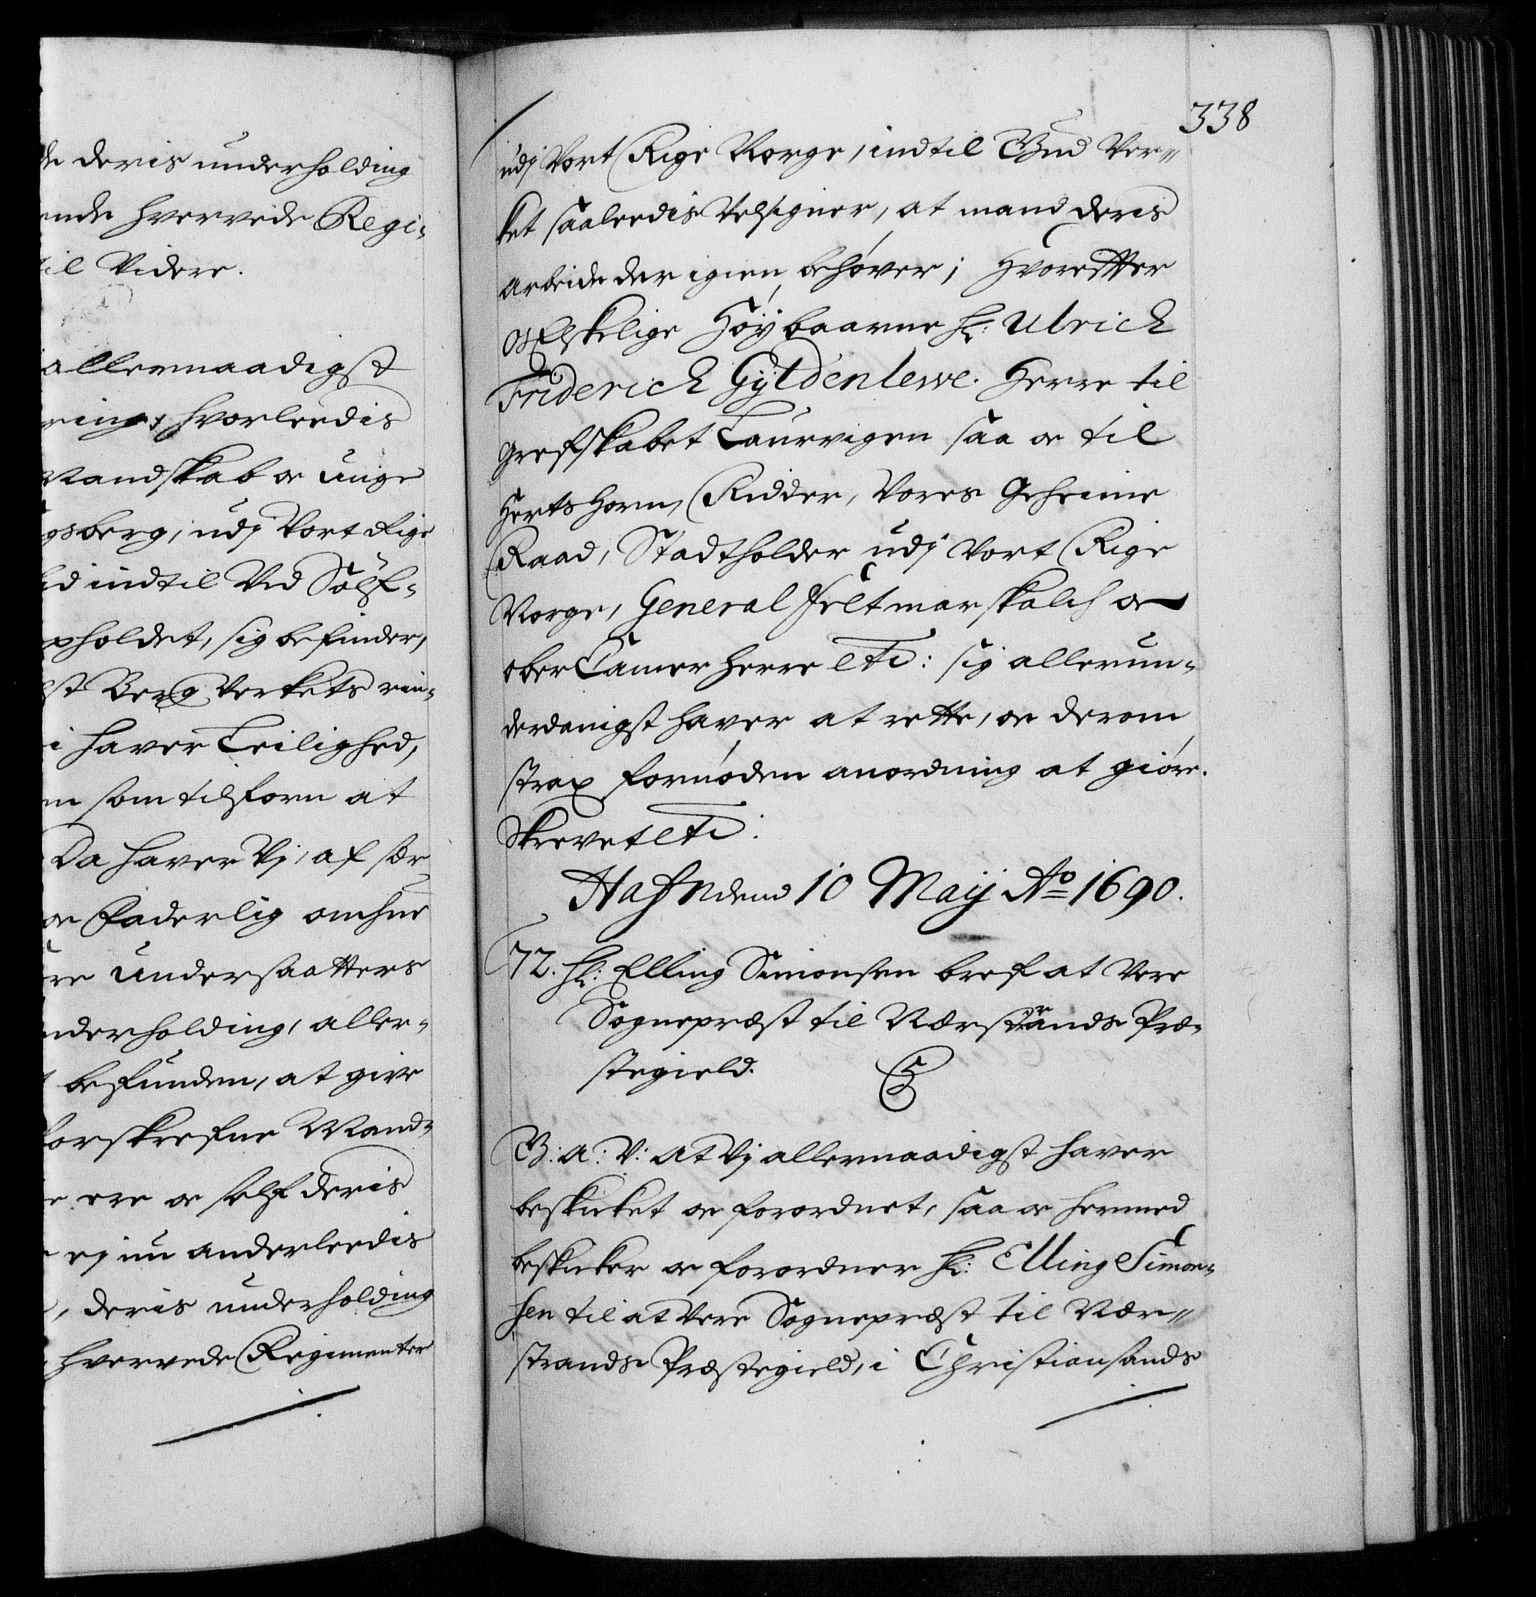 de deris underholding
ende hvervede Regi-
til Videre.
allernaadigst
ring, hvorleedis
Mandskab oc Unge
gsberg, udj Vort Rige
indtil Ved Sølf-
pholdet, sig befinder,
st Berg Verkets ren-
i haver Leilighed,
m som tilforn at
Da haver Vj, af sær
oc Faderlig omhue
re Undersaatters
nderholding, aller-
befunden, at give
forskrefne Mand-
ere oc self deris
ej nu anderleedis
, deris underholding
hvervede Regimenter
338
udj Vort Rige Norge, indtil Gud Ver-
ket saaleedis Velsigner, at mand deris
arbeide der igien behøver; Hvorefter
os Elskelige Høybaarne Hr: Ulrich
Friderich Gyldenlewe. Herre til
Grefskabet Laurvigen saa oc til
Hertshorn, Ridder, Vores Geheime
Raad, Stadtholder udj Vort Rige
Norge, General Feltmarskalch oc
ober Camer Herre etc: sig allerun-
derdanigst haver at rette, oc derom
strax fornøden anordning at giøre.
Skrevet etc:
Hafn dend 10 Maij Ao 1690.
72. Hr: Elling Simonsen bref at Vere
Sognepræst til Nærstrands Præ-
stegield.
G: A: V: at Vj allernaadigst haver
beskicket oc forordnet, saa oc hermed
beskicker oc forordner Hr: Elling Simon-
sen til at Vere Sognepræst til Nær-
strands Præstegield, i Christiansands